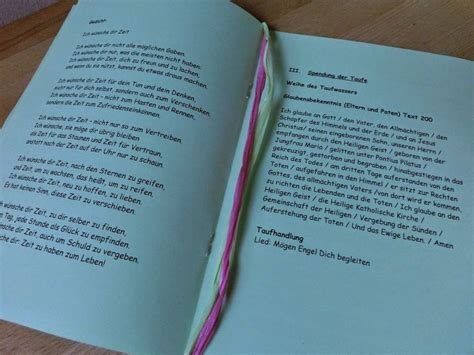 Gedicht:
Ich wünsche dir Zeit
Ich wünsche dir nicht alle möglichen Gaben.
Ich wünsche dir nur, was die meisten nicht haben:
Ich wünsche dir Zeit, dich zu freun und zu lachen,
und wenn du sie nützt, kannst du etwas draus machen.
Ich wünsche dir Zeit für dein Tun und dein Denken,
nicht nur für dich selbst, sondern auch zum Verschenken.
Ich wünsche dir Zeit - nicht zum Hasten und Rennen,
sondern die Zeit zum Zufriedenseinkönnen.
Ich wünsche dir Zeit - nicht nur so zum Vertreiben.
Ich wünsche, sie möge dir übrig bleiben
als Zeit für das Staunen und Zeit für Vertraun,
anstatt nach der Zeit auf der Uhr nur zu schaun.
wünsche dir Zeit, nach den Sternen zu greifen,
und Zeit, um zu wachsen, das heißt, um zu reifen.
wünsche dir Zeit, neu zu hoffen, zu lieben.
Es hat keinen Sinn, diese Zeit zu verschieben.
wünsche dir Zeit, zu dir selber zu finden,
Tag, jede Stunde als Glück zu empfinden.
wünsche dir Zeit, auch um Schuld zu vergeben.
wünsche dir: Zeit zu haben zum Leben!
III. Spendung der Taufe
Weihe des Taufwassers
Glaubensbekenntnis (Eltern und Paten) Text 200
Ich glaube an Gott / den Vater, den Allmächtigen / den
Schöpfer des Himmels und der Erde / und an Jesus
Christus/ seinen eingeborenen Sohn, unseren Herrn /
empfangen durch den Heiligen Geist / geboren von der
Jungfrau Maria / gelitten unter Pontius Pilatus /
gekreuzigt, gestorben und begraben / hinabgestiegen in das
Reich des Todes / am dritten Tage auferstanden von den
Toten / aufgefahren in den Himmel / er sitzt zur Rechten
Gottes, des allmächtigen Vaters / Von dort wird er kommen,
zu richten die Lebenden und die Toten / Ich glaube an den
Heiligen Geist / die Heilige Katholische Kirche /
Gemeinschaft der Heiligen / Vergebung der Sünden /
Auferstehung der Toten / Und das Ewige Leben. / Amen
Taufhandlung
Lied: Mögen Engel Dich begleiten